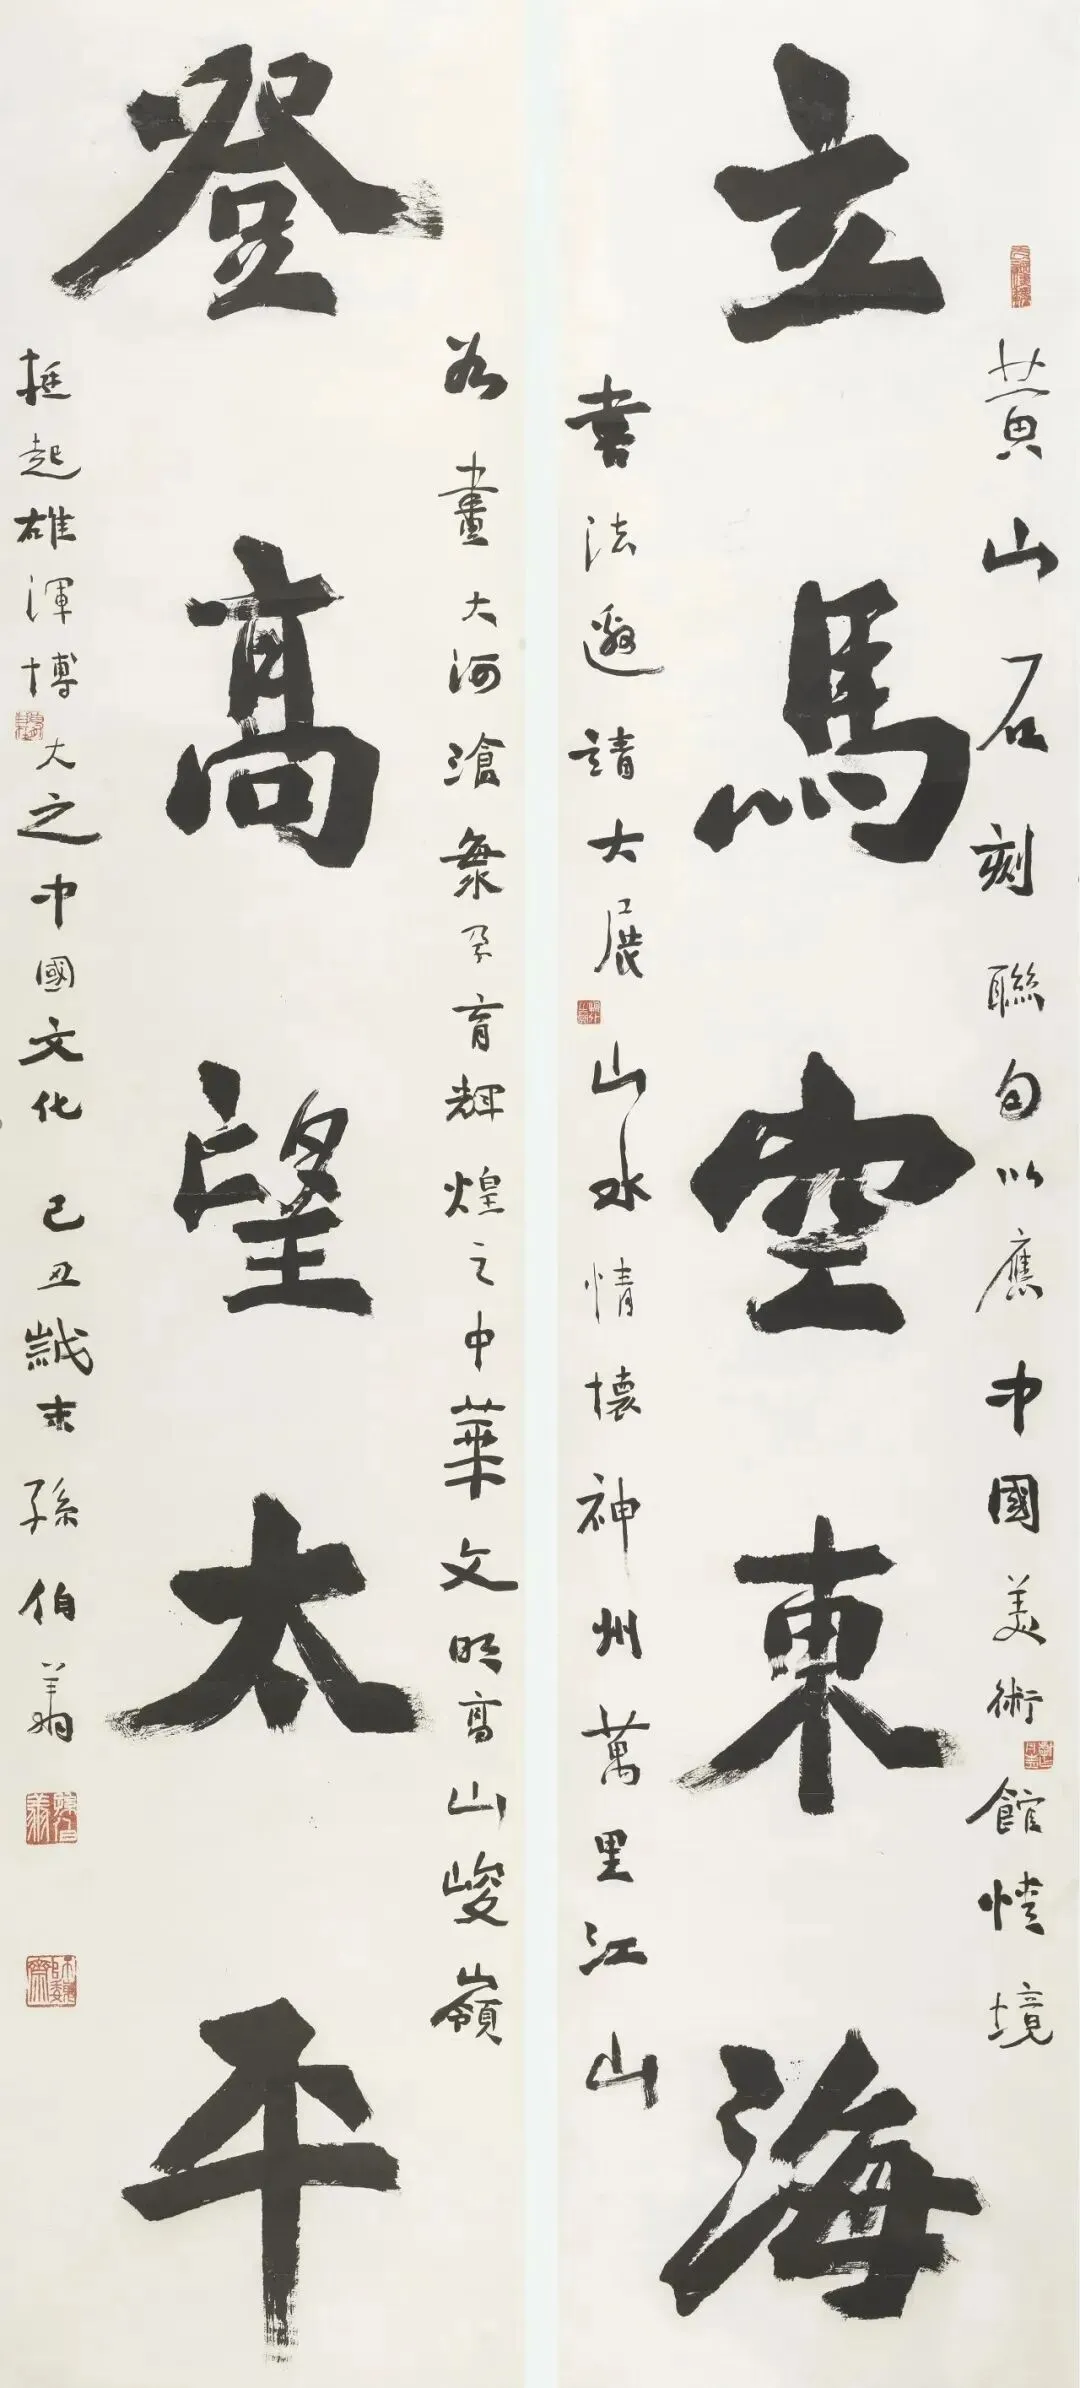 黄山石刻聯句以應中國美術館情境
立馬空東海
書法邀請大展山水情懷神州萬里江山
如畫大河滄桑孕育輝煌之中華文明高山峻嶺
登高望太平
挺起雄渾博大之中國文化 己丑歲末 孫伯翔